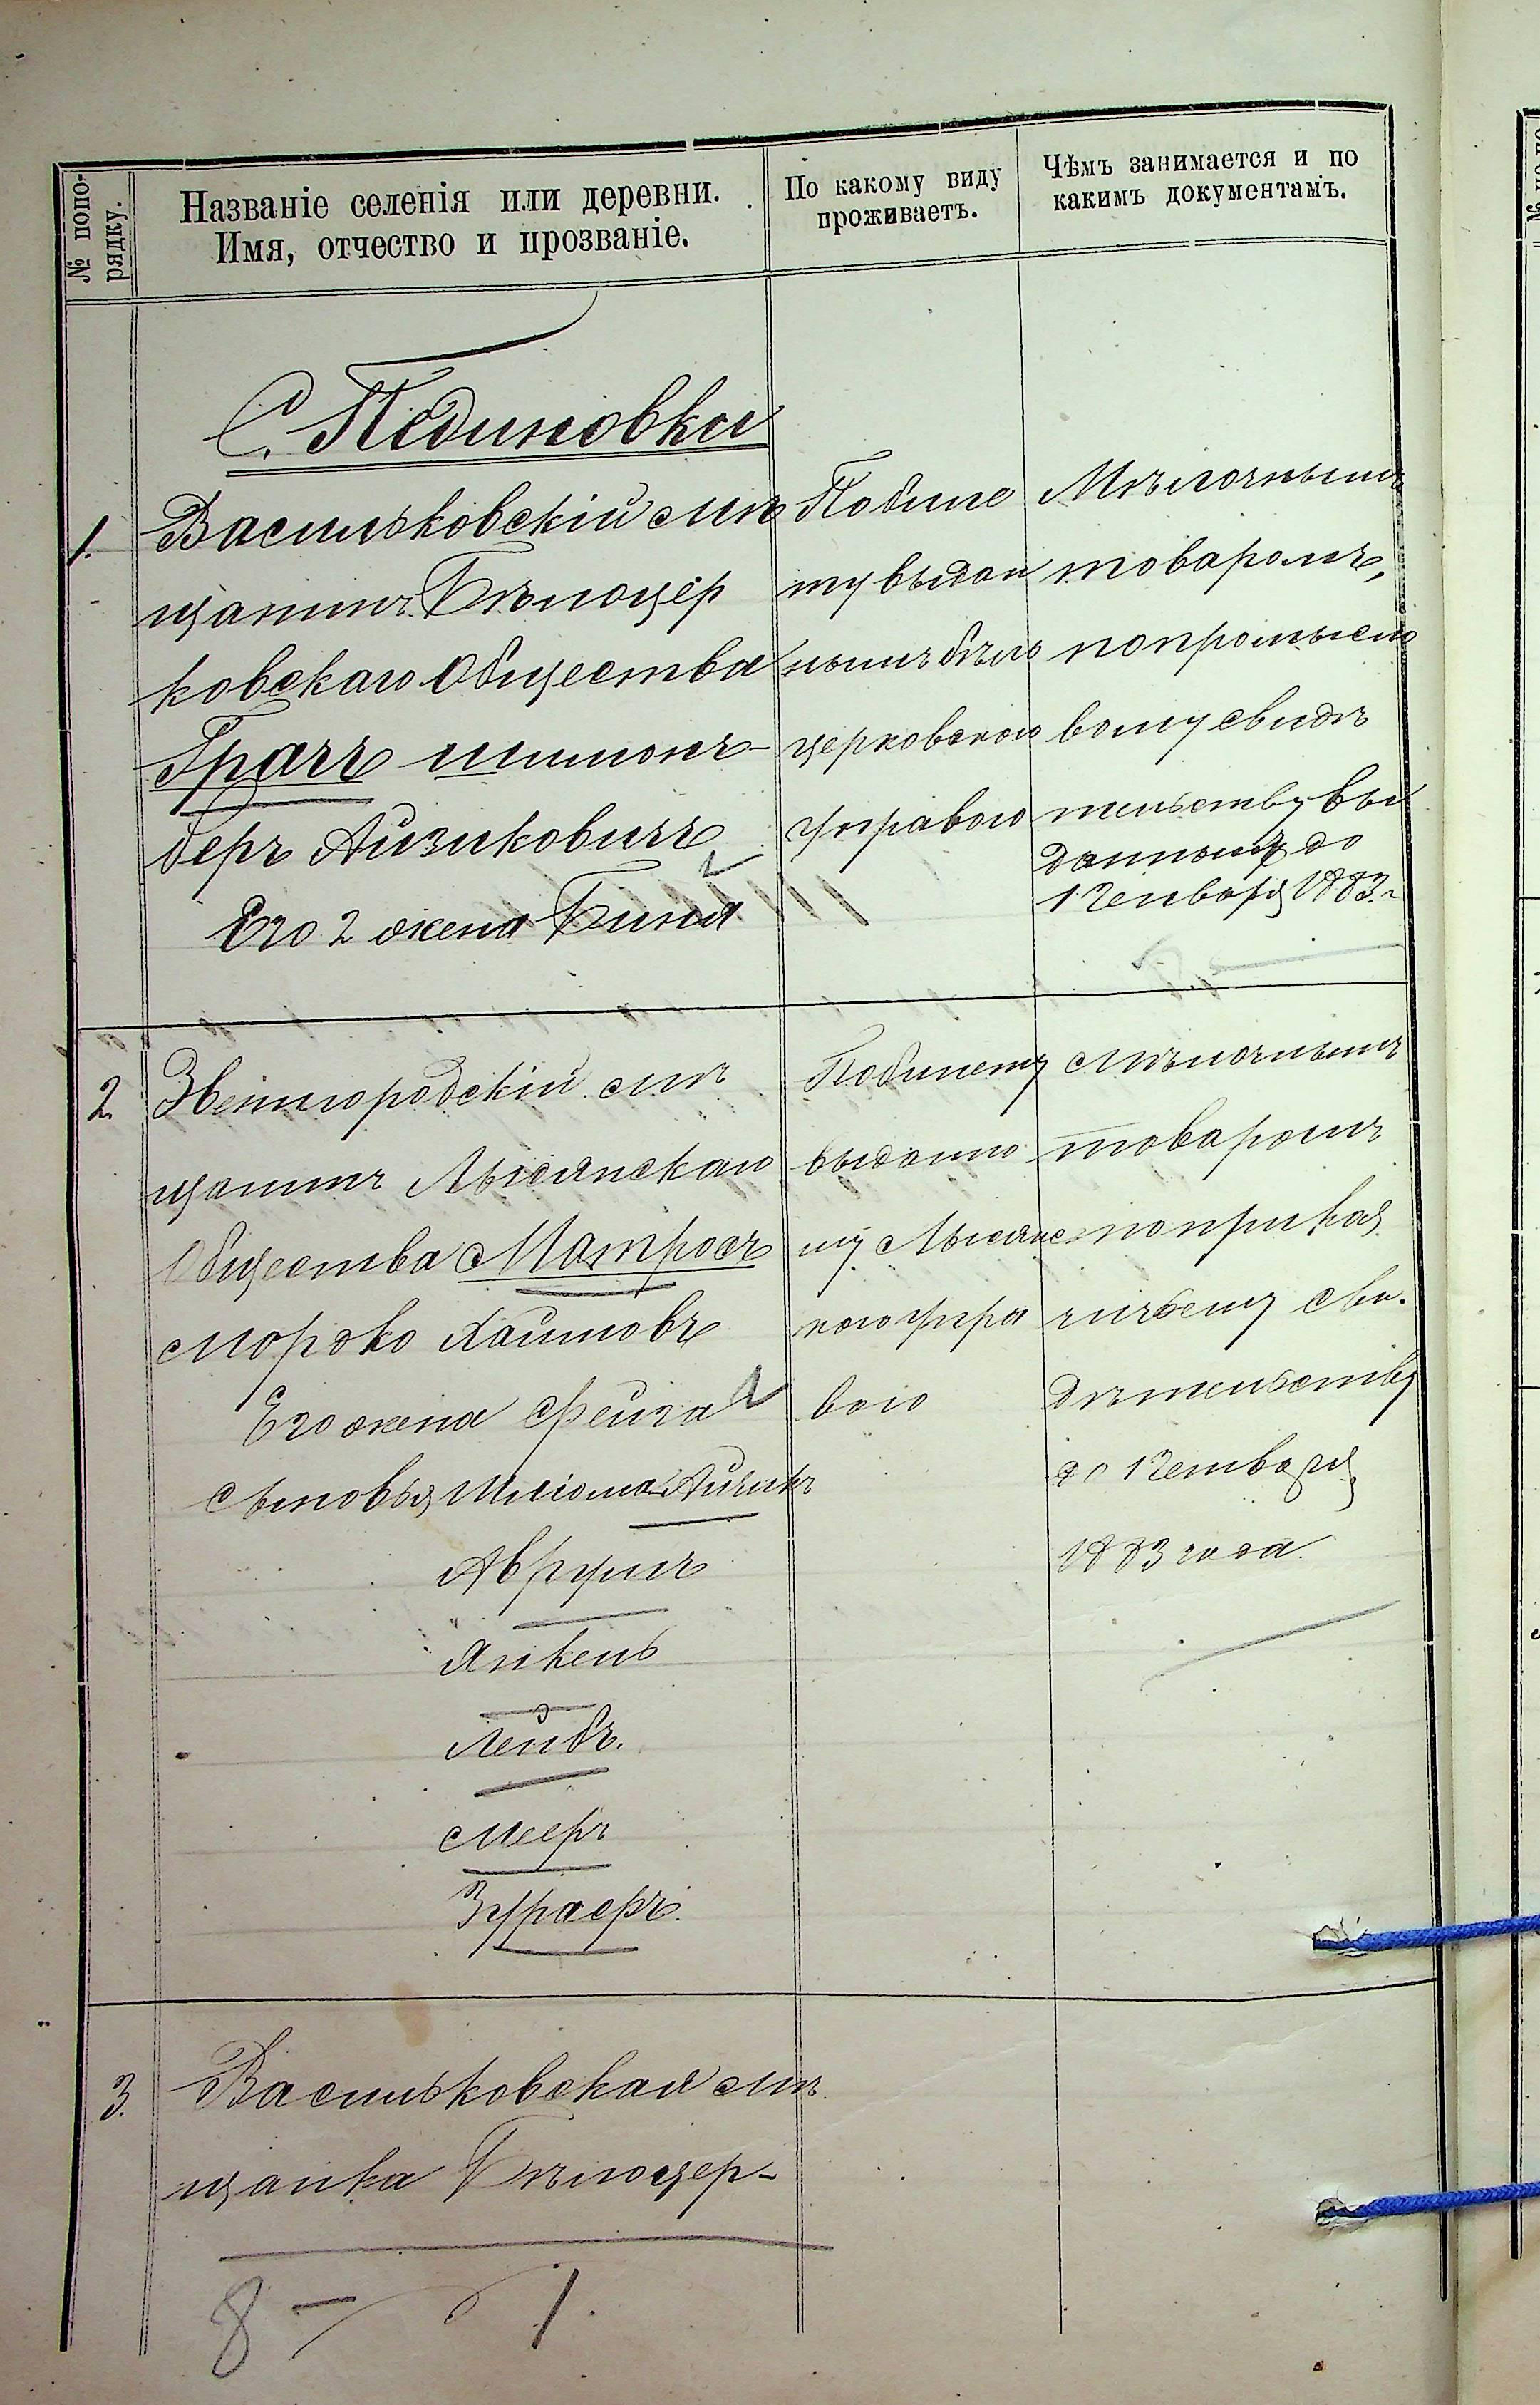 № попо-
рядку.
Названіе селенія или деревни.
Имя, отчество и прозваніе.
По какому виду
проживаетъ.
Чѣмъ занимается и по
какимъ документамъ.
С. Пединовка
1.
Васильковскій мѣ
щанинъ Бѣлоцер
ковскаго Общества
Грачъ Шимонъ-
беръ Айзиковичъ
Его 2 жена Биня
По биле
ту выдан
нымъ бѣло
церковскою
управою
Мѣлочнымъ
товаромъ,
по промысло
вому свидѣ
тельству вы
данному до
1 Генваря 1883 г
2.
Звенигородскій мѣ
щанинъ Лысянскаго
Общества Матросъ
Мордко Хаимовъ
Его жена Фейга
Сыновья Шлiома-Айзикъ
Аврумъ
Янкель
Лейбъ.
Мееръ
По билету
выданно
му Лысянс
кою упра
вою
Мѣлочнымъ
товаромъ
по прикащ
ичьему сви-
дѣтельству
до 1 Генваря
1883 года.
3.
Васильковская мѣ
щанка Бѣлоцер-
8 — 1.